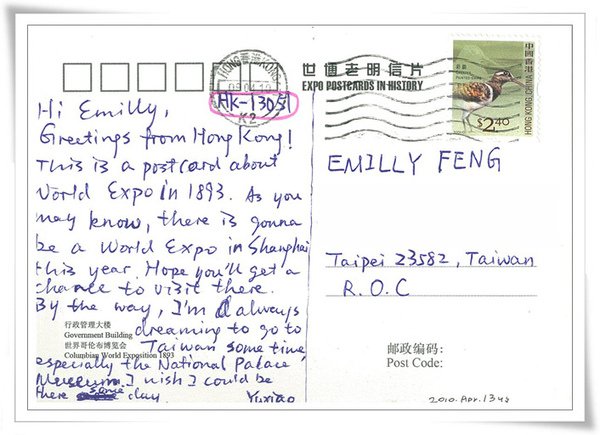 世博老明信片
EXPO POSTCARDS IN HISTORY
HONG KONG 香港
K2
中国香港 HONG KONG, CHINA
$2.40
Hi Emilly,
Greetings from Hong Kong!
This is a postcard about
World Expo in 1893. As you
may know, there is gonna
be a World Expo in Shanghai
this year. Hope you'll get a
chance to visit there.
By the way, I'm always
dreaming to go to
Taiwan some time,
especially the National Palace
Museum. I wish I could be
there some day.
Yuxiao
行政管理大楼
Government Building
世界哥伦布博览会
Columbian World Exposition 1893
EMILLY FENG
Taipei 23582, Taiwan
R.O.C
邮政编码:
Post Code:
2010. Apr. 13